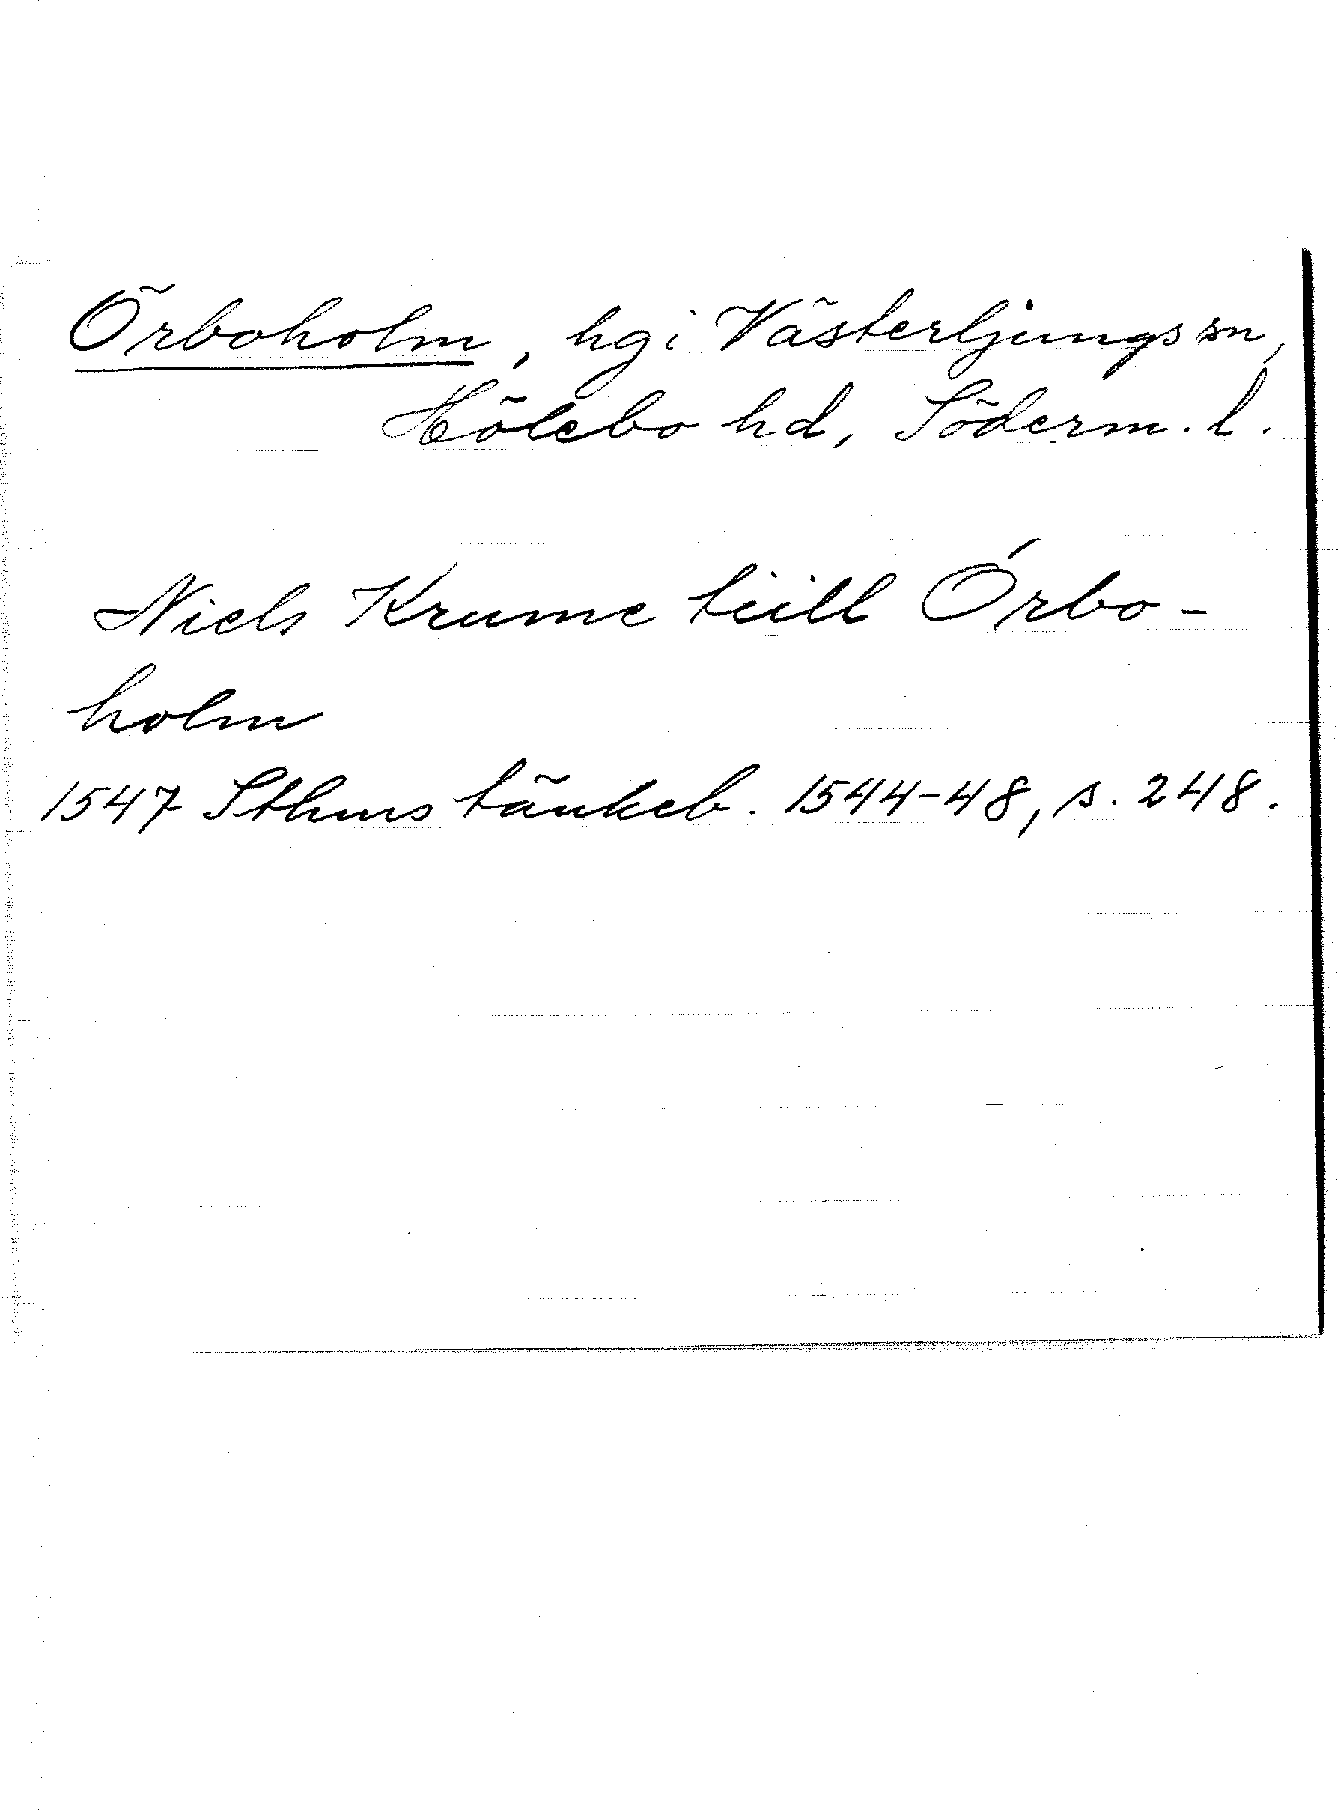 Örboholm, hg i Västerljungs sn,
Hölebo hd, Söderm. l.
Niels Krume tiill Órbo-
holm
1547 Sthms tänkeb. 1544-48, s. 248.